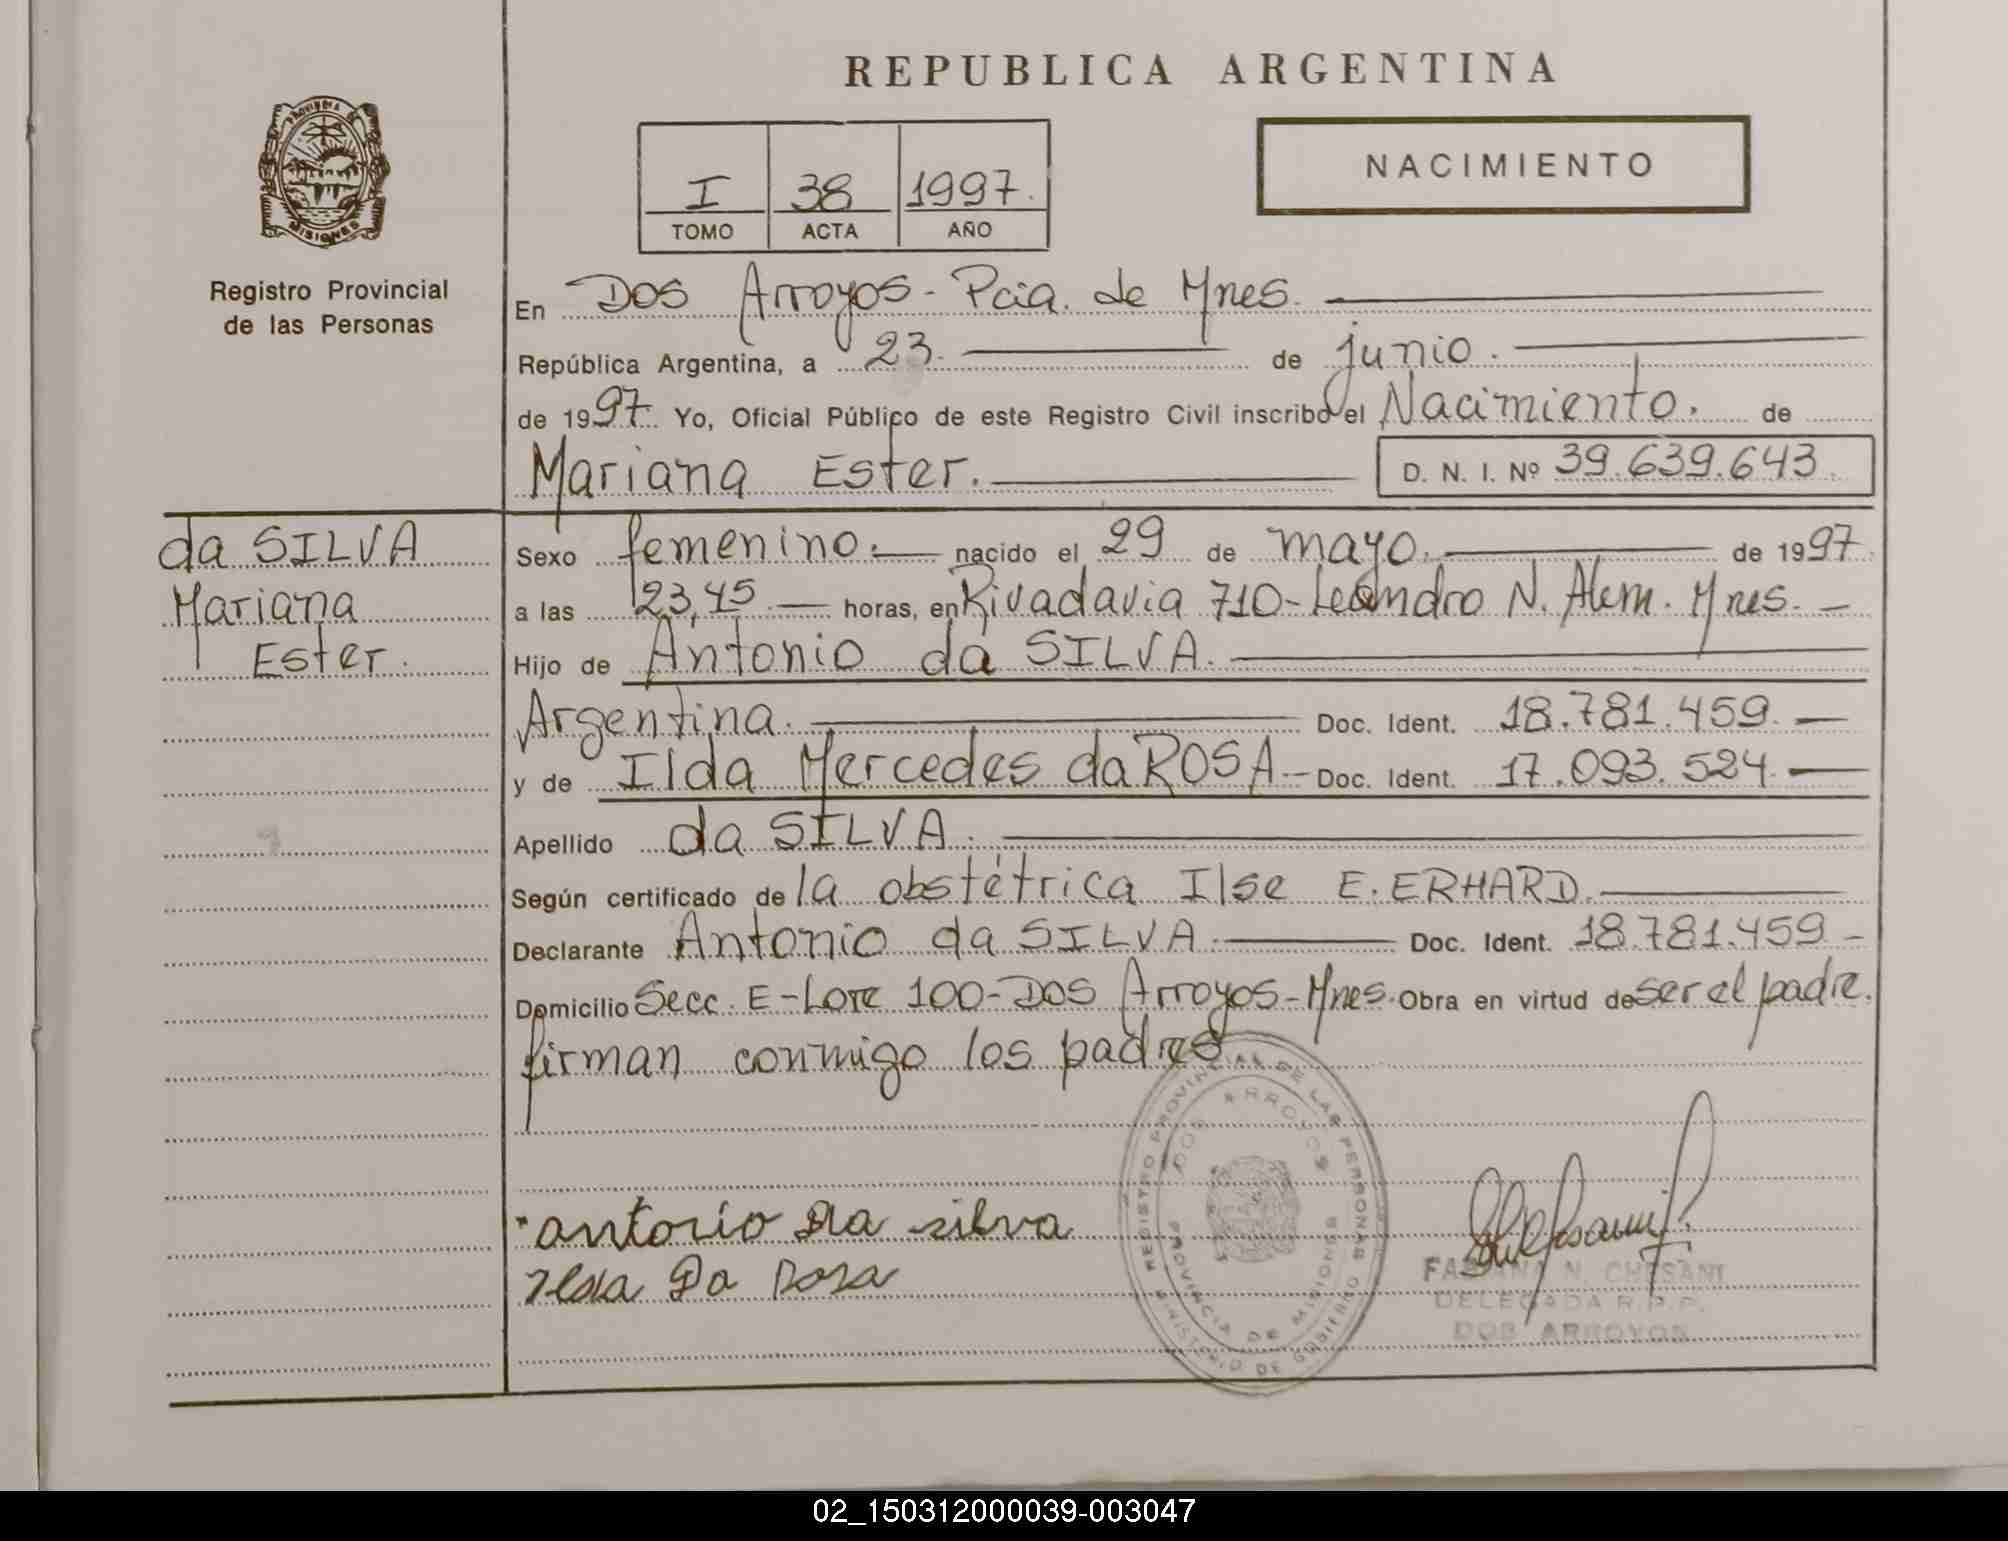 REPUBLICA ARGENTINA
PROVINCIA DE
MISIONES
Registro Provincial
de las Personas
I 38 1997.
TOMO ACTA AÑO
NACIMIENTO
En Dos Arroyos - Pcia. de Mnes.
República Argentina, a 23. de junio.
de 1997. Yo, Oficial Público de este Registro Civil inscribo el Nacimiento. de
Mariana Ester. D. N. I. Nº 39.639.643.
da SILVA
Mariana
Ester.
Sexo femenino. nacido el 29 de mayo. de 1997
a las 23,45 horas, en Rivadavia 710-Leandro N. Alem. Mnes.
Hijo de Antonio da SILVA.
Argentina. Doc. Ident. 18.781.459.
y de Ilda Mercedes da ROSA Doc. Ident. 17.093.524.
Apellido da SILVA.
Según certificado de la obstétrica Ilse E. ERHARD.
Declarante Antonio da SILVA. Doc. Ident. 18.781.459
Domicilio Secc. E-Lote 100-Dos Arroyos-Mnes. Obra en virtud de ser el padre.
firman conmigo los padres
REGISTRO PROVINCIAL DE LAS PERSONAS
MINISTERIO DE GOBIERNO
DOS ARROYOS
PROVINCIA DE MISIONES
antorio Da silva
Ilda Da Rosa
FABIANA N. CHESANI
DELEGADA R.P.P.
DOS ARROYOS
02_150312000039-003047